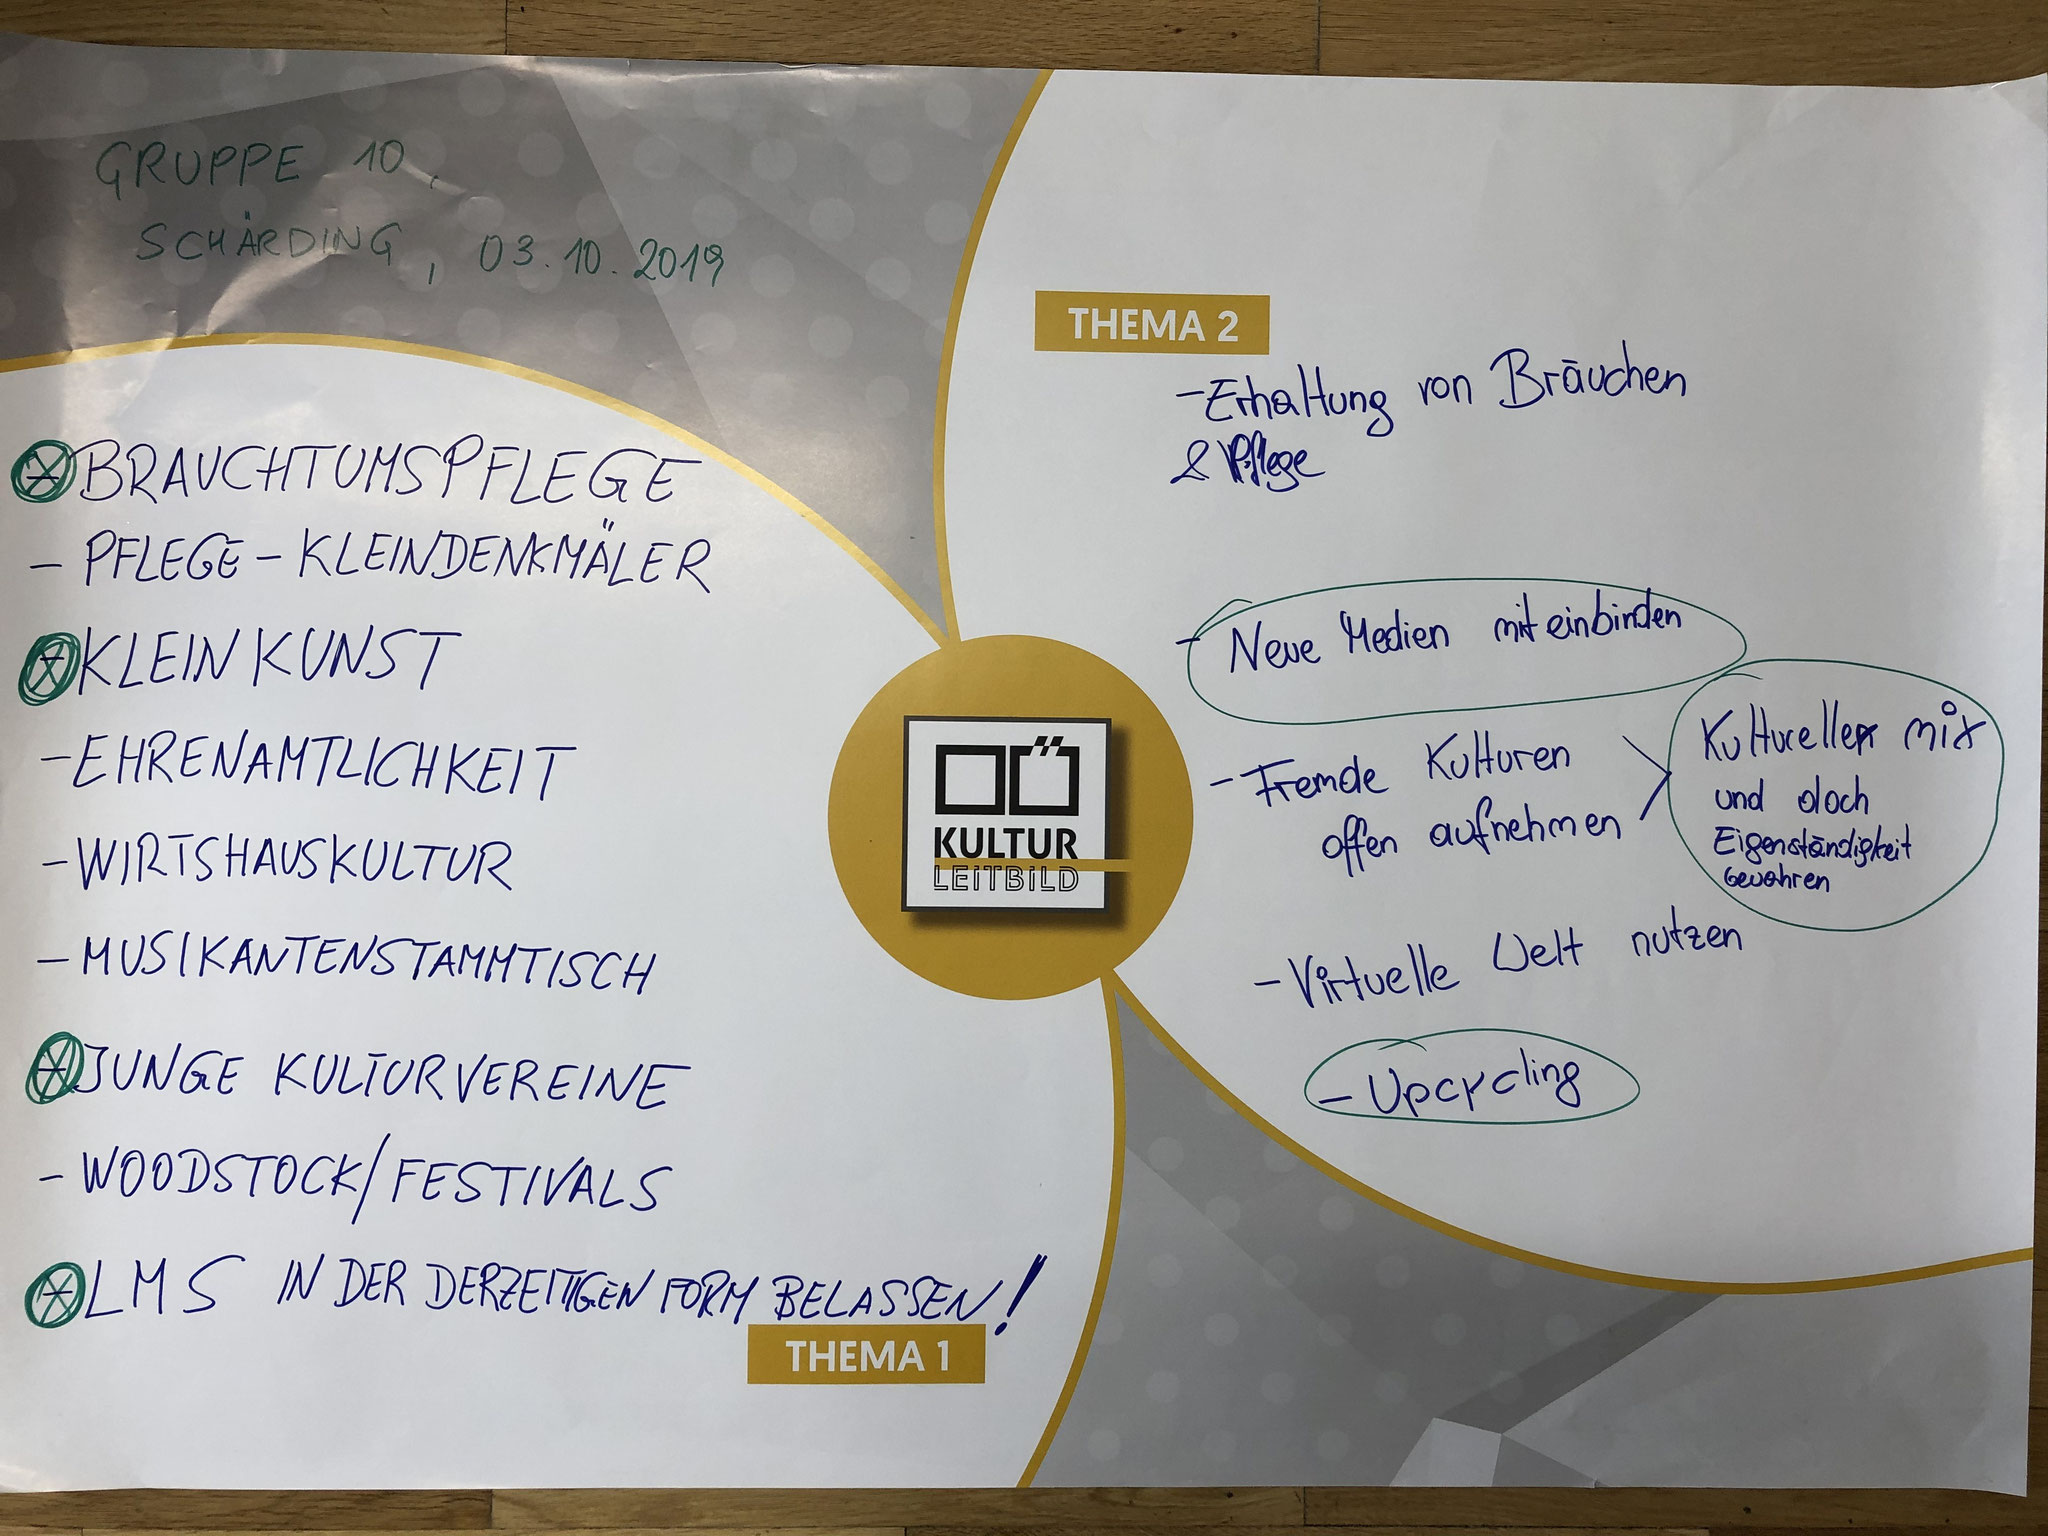 GRUPPE 10,
SCHÄRDING, 03.10.2019
BRAUCHTUMSPFLEGE
- PFLEGE - KLEINDENKMÄLER
KLEINKUNST
- EHRENAMTLICHKEIT
- WIRTSHAUSKULTUR
- MUSIKANTENSTAMMTISCH
JUNGE KULTURVEREINE
- WOODSTOCK/FESTIVALS
LMS IN DER DERZEITIGEN FORM BELASSEN!
THEMA 1
OÖ
KULTUR
LEiTBiLD
THEMA 2
- Erhaltung von Bräuchen
& Pflege
- Neue Medien miteinbinden
- Fremde Kulturen
offen aufnehmen
Kultureller mix
und doch
Eigenständigkeit
bewahren
- Virtuelle Welt nutzen
- Upcycling